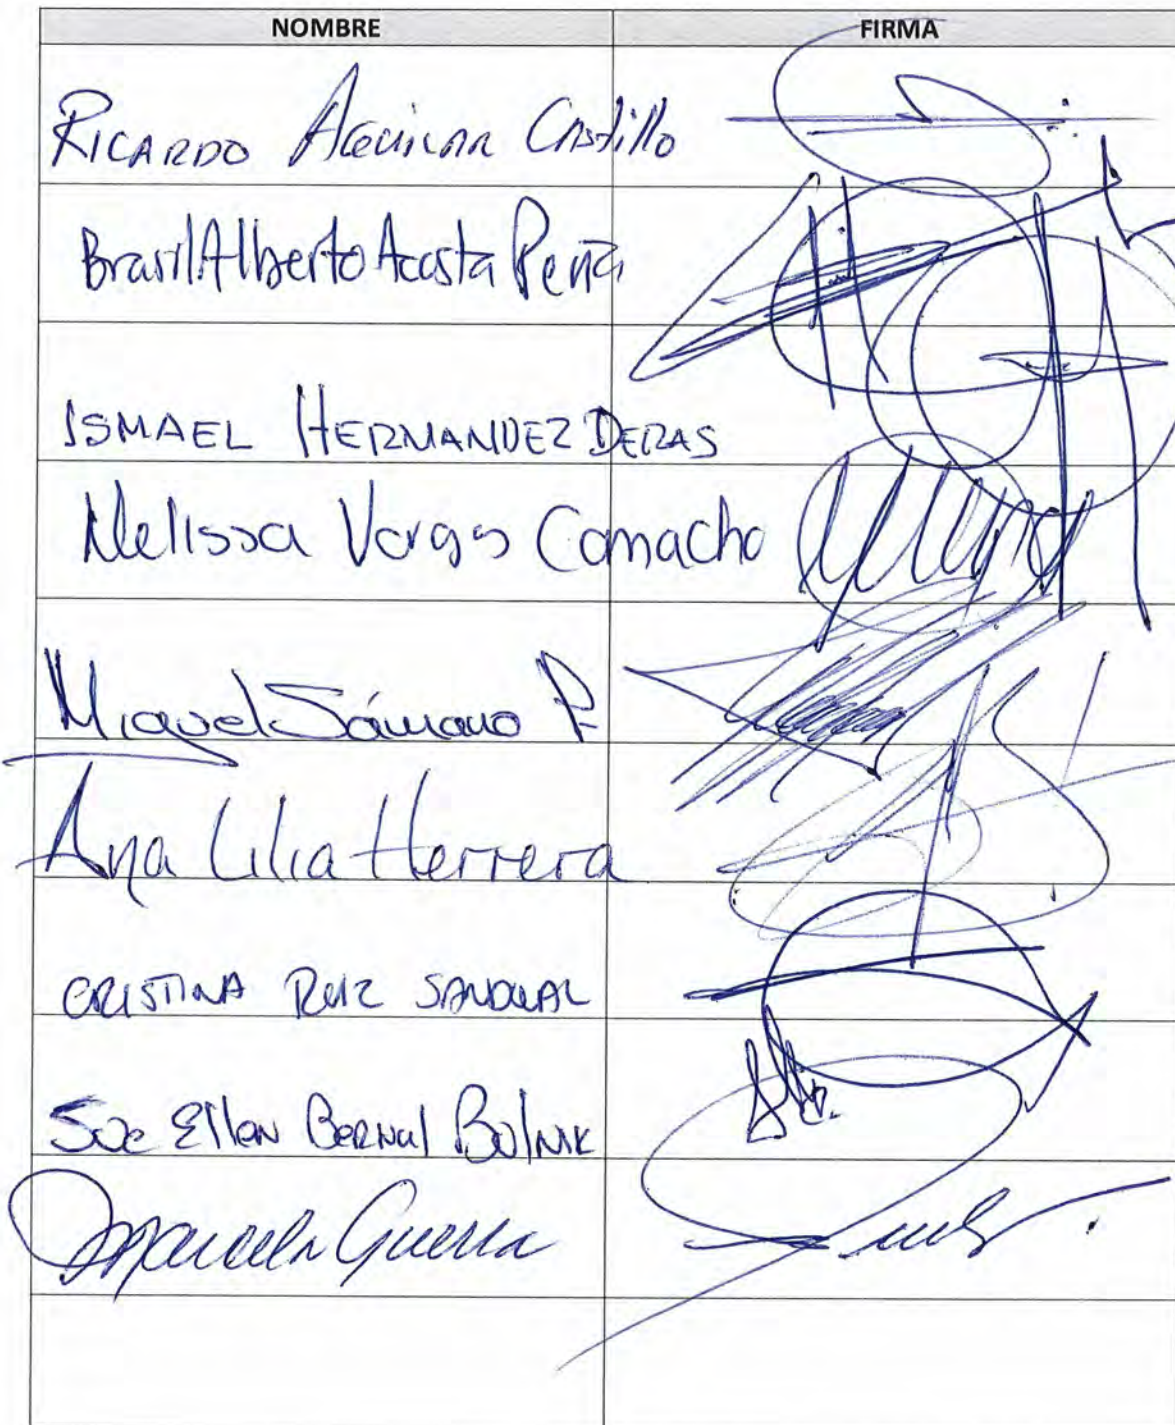 NOMBRE FIRMA
RICARDO Aguilar Castillo
Brasil Alberto Acosta Peña
ISMAEL HERNANDEZ DERAS
Melissa Vargas Camacho
Miguel Sámano P.
Ana Lilia Herrera
CRISTINA RUIZ SANDOVAL
Sue Ellen Bernal Bolnik
Marcela Guerra